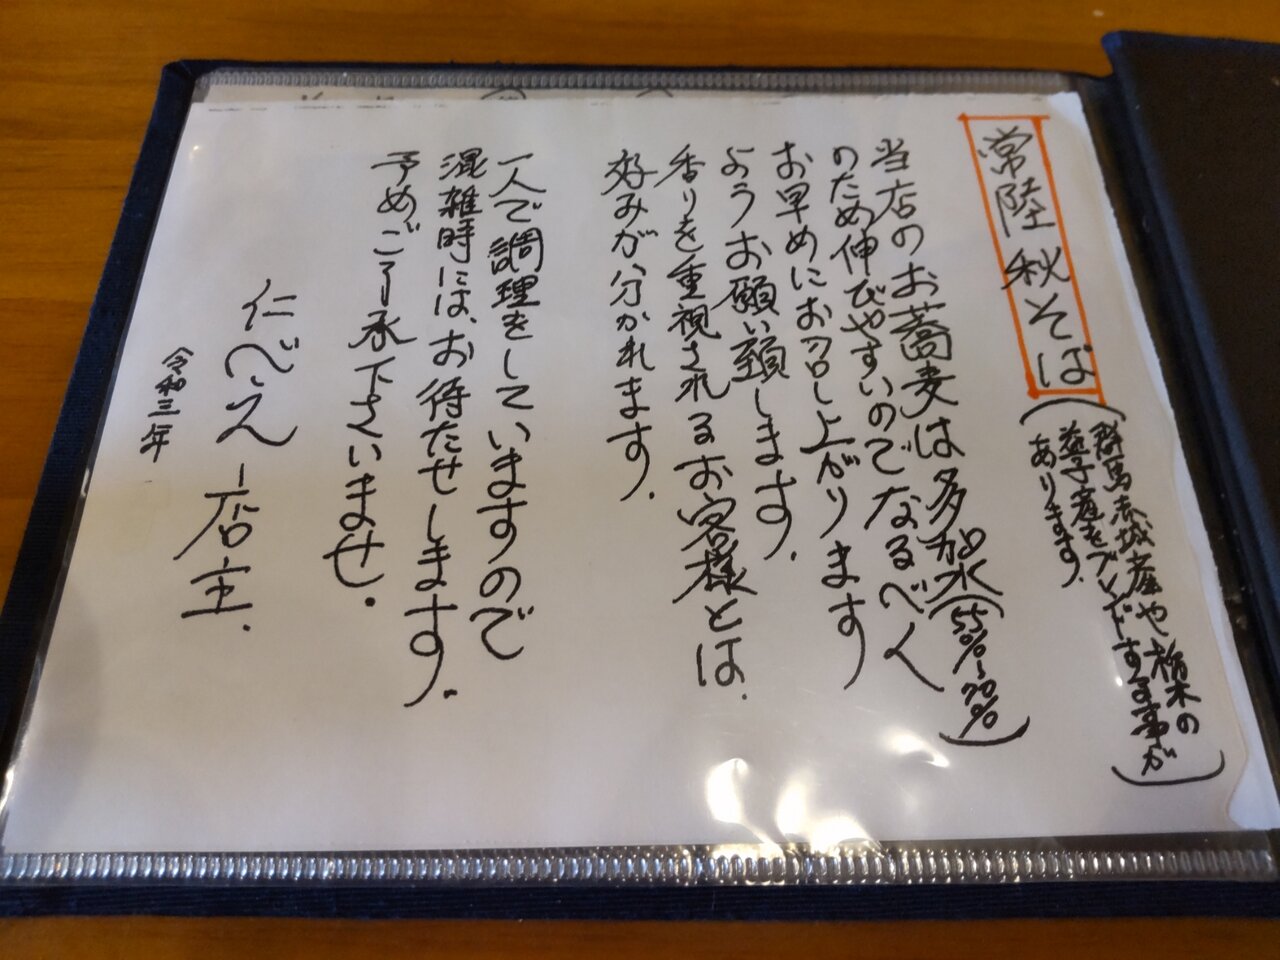 常陸秋そば
(群馬赤城産や栃木の
益子産をブレンドする事が
あります。)
当店のお蕎麦は多加水(55%~70%)
のため伸びやすいのでなるべく
お早めにお召し上がります
ようお願い致します。
香りを重視されるお客様とは、
好みが分かれます。
一人で調理をしていますので
混雑時には、お待たせします。
予めご了承下さいませ。
仁べえ 店主.
令和三年